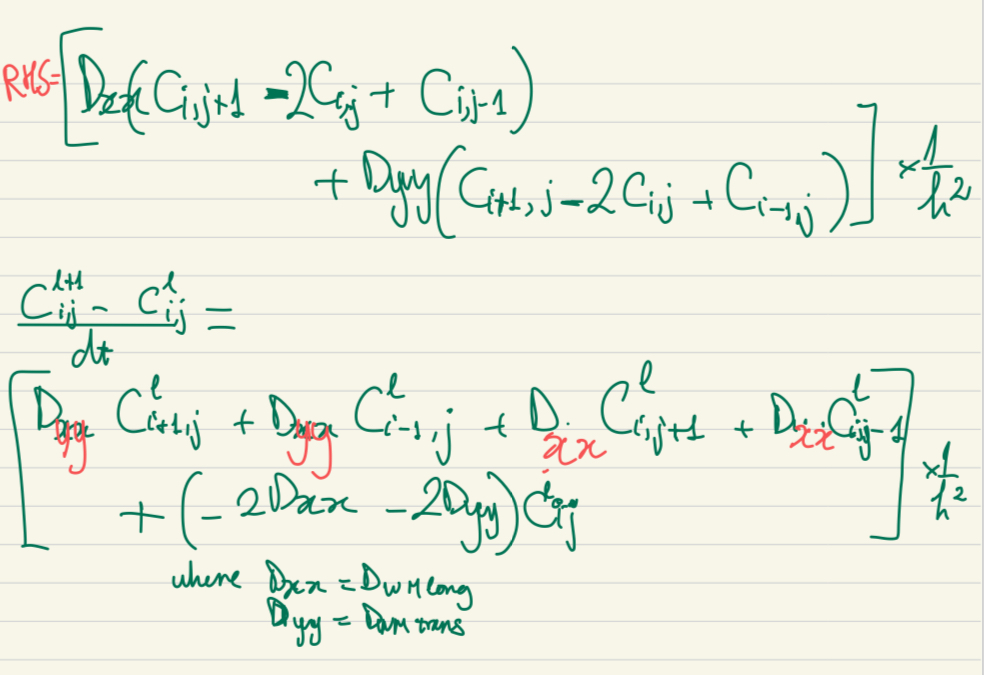 RHS = [Dxx(Ci,j+1 - 2Ci,j + Ci,j-1)
+ Dyy(Ci+1,j - 2Ci,j + Ci-1,j)] × 1/h²
(Cij^(l+1) - Cij^l)/dt =
[Dyy Ci+1,j^l + Dyy Ci-1,j^l + Dxx Ci,j+1^l + Dxx Cij-1^l
+ (-2Dxx - 2Dyy) Cij^l] × 1/h²
where Dxx = DWM long
Dyy = DWM trans